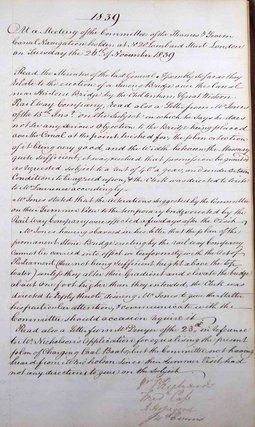 1839
At a Meeting of the Committee of the Thames & Severn
Canal Navigation holden at No 20 Lombard Street London
on Tuesday the 26th of November 1839
Read the Minutes of the last General Assembly so far as they
relate to the erection of a Stone Bridge over the Canal
in Skidmore Bridge by the Cheltenham & Great Western
Railway Company, read also a Letter from Mr Jones
of the 15th Inst on the subject in which he says he does
not see any serious Objection to the Bridge being placed
over the Canal at the point touched for, the plan & section
of it being very good, and the Width between the
quite sufficient, it was resolved that permission be granted
as requested subject to a Rent of and under certain
Conditions to be agreed upon, & the Clerk was directed to write
to Mr Lawrence accordingly
Mr Jones stated that the alterations suggested by the Committee
in the Turn over Bar to the temporary bridge erected by the
Railway Company were effected a few days after the
Mr Jones having observed in his letter that the plan of the
permanent Stone Bridge erecting by the Railway Company
cannot be carried into effect in conformity with the Act of
Parliament (there not being sufficient height above the top
water) unless they alter their Gradient and elevate the bridge
about one foot higher than they intended, the Clerk was
directed to reply thereto desiring Mr Jones to give the matter
his particular attention, & communicate with the
Committee should occasion require it
Read also a Letter from Mr Denyer of the 23rd in reference
to Mr Nicholson's application for equalising the present
plan of Charging Coal Boats, but the Committee not having
heard from Mr Nicholson since June or Cecil had
not any directions to give on the subject